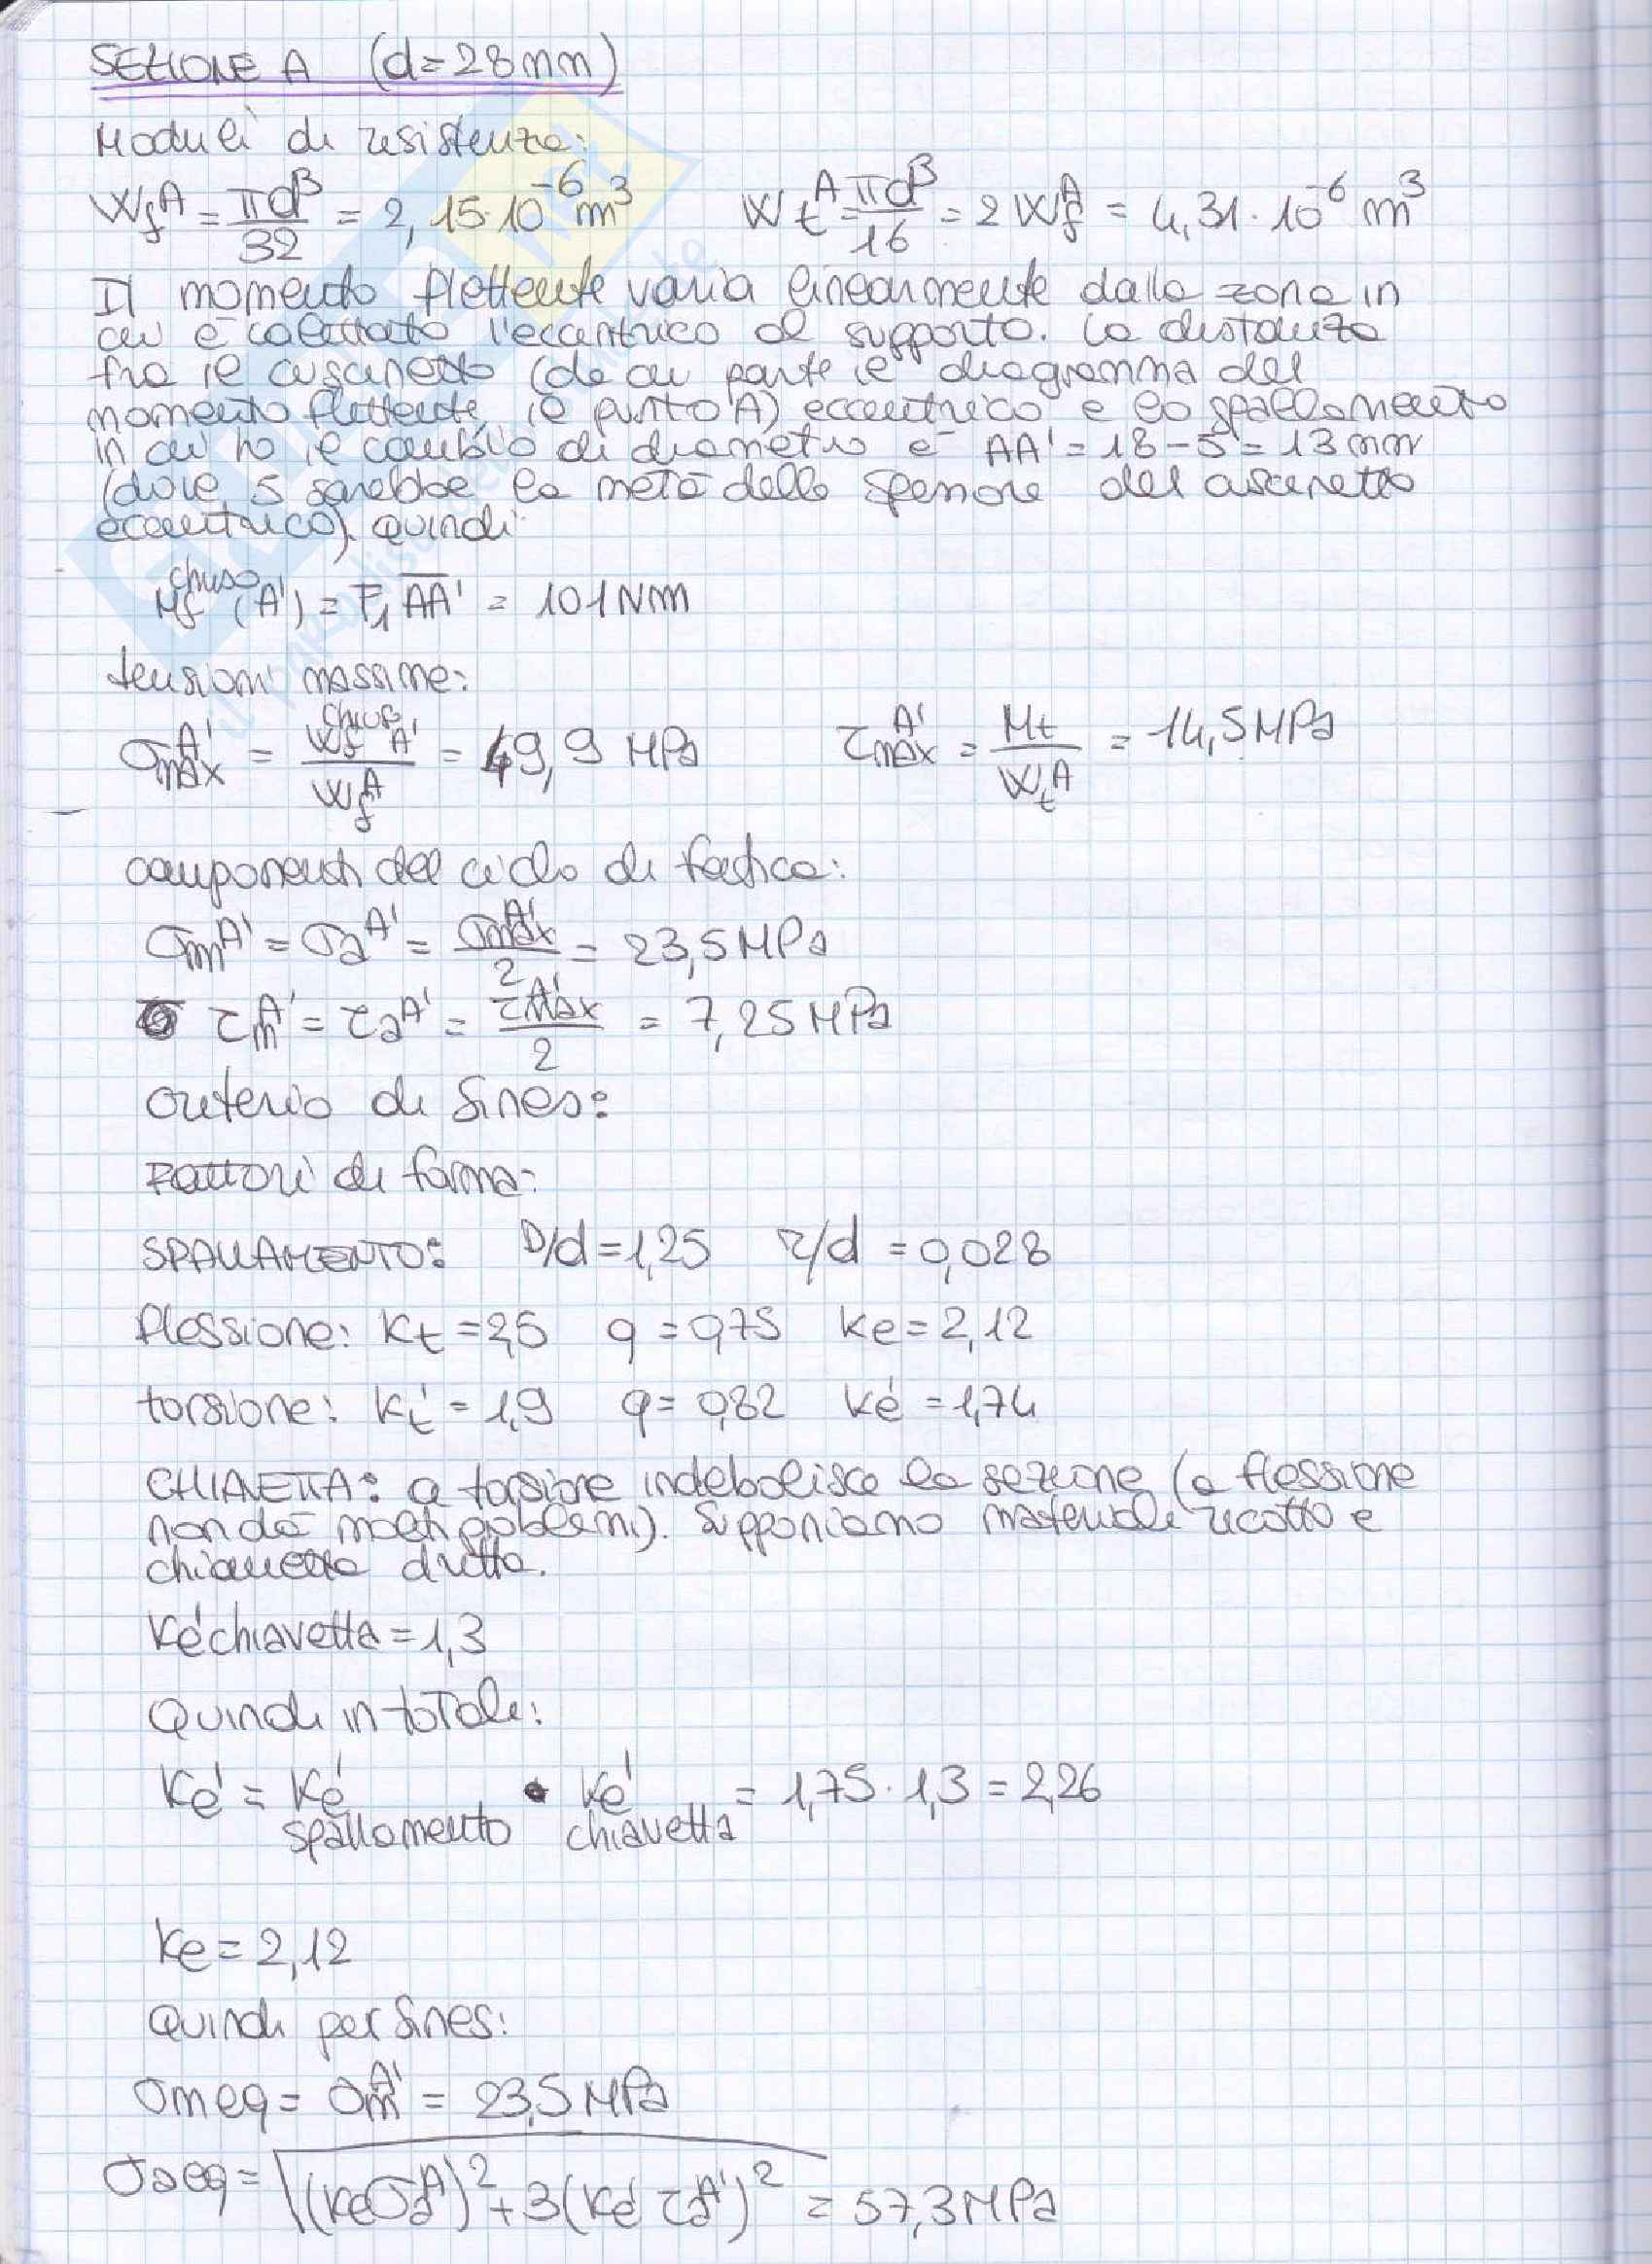 SEZIONE A (d=28mm)
Moduli di resistenza:
Wf^A = πd^3/32 = 2,15·10^-6 m^3   Wt^A = πd^3/16 = 2Wf^A = 4,31·10^-6 m^3
Il momento flettente varia linearmente dalla zona in
cui è calettato l'eccentrico al supporto. La distanza
fra il cuscinetto (da cui parte il diagramma del
momento flettente, il punto A) eccentrico e lo spallamento
in cui ho il cambio di diametro è AA' = 18-5 = 13mm
(dove 5 sarebbe la metà dello spessore del cuscinetto
eccentrico). Quindi
Mf^chiuso (A') = F1 AA' = 101Nm
tensioni massime:
σmax^A' = Wf^chiuso A' / Wf^A = 49,9 MPa   τmax^A' = Mt/Wt^A = 14,5MPa
componenti del ciclo di fatica:
σm^A' = σa^A' = σmax^A'/2 = 23,5MPa
τm^A' = τa^A' = τmax^A'/2 = 7,25MPa
Criterio di Sines:
Fattori di forma:
SPALLAMENTO: D/d=1,25 r/d=0,028
flessione: Kt=2,5 q=0,75 Ke=2,12
torsione: Kt'=1,9 q=0,82 Ke'=1,74
CHIAVETTA: a torsione indebolisce la sezione (a flessione
non dà molti problemi). Supponiamo materiale ricotto e
chiavetta diritta.
Ke'chiavetta=1,3
Quindi in totale:
Ke' = Ke' spallamento · Ke' chiavetta = 1,75·1,3=2,26
Ke=2,12
Quindi per Sines:
σmeq = σm^A' = 23,5MPa
σaeq = √((Keσa^A')^2+3(Ke'τa^A')^2) = 57,3MPa